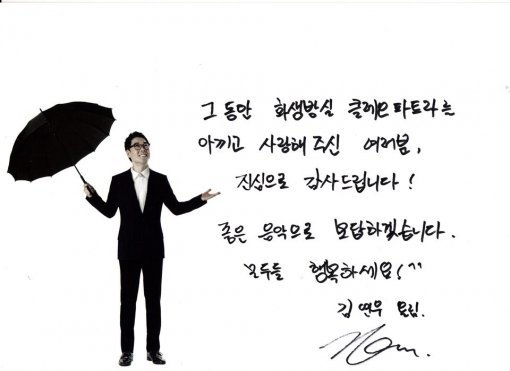 그동안 화생방실 클레오파트라를
아끼고 사랑해주신 여러분,
진심으로 감사드립니다!
좋은 음악으로 보답하겠습니다.
모두들 행복하세요!^^
김연우 드림.